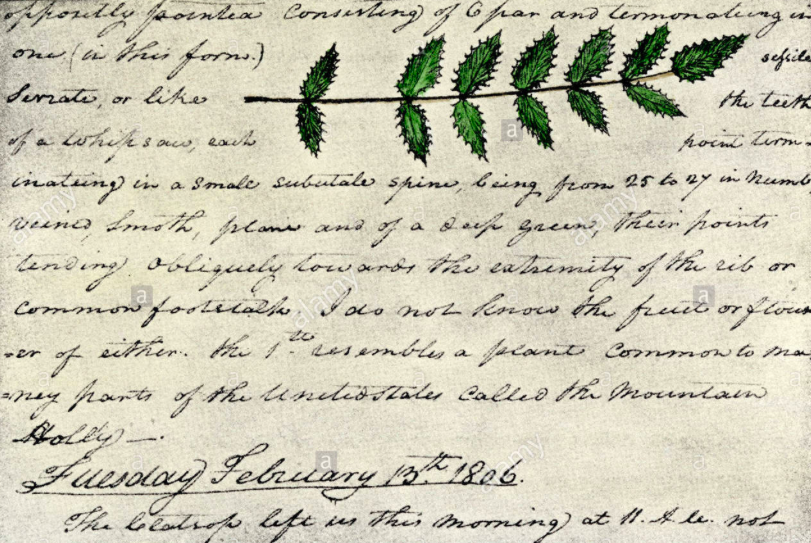 oppositly pointed consisting of 6 par and termonateing in
one (in this form.) sessile
serrate, or like the teeth
of a whipsaw, each point term=
inateing in a small subulate spine, being from 25 to 27 in numb
veined, smoth, plane and of a deep green, their points
tending obliquely towards the extremity of the rib or
common footstalk. I do not know the fruit or flow
=er of either. the 1st resembles a plant common to ma
=ney parts of the Unitedstates called the Mountain
Holly—.
Tuesday February 13th 1806.
The Clatsop left us this morning at 11. A.M. not